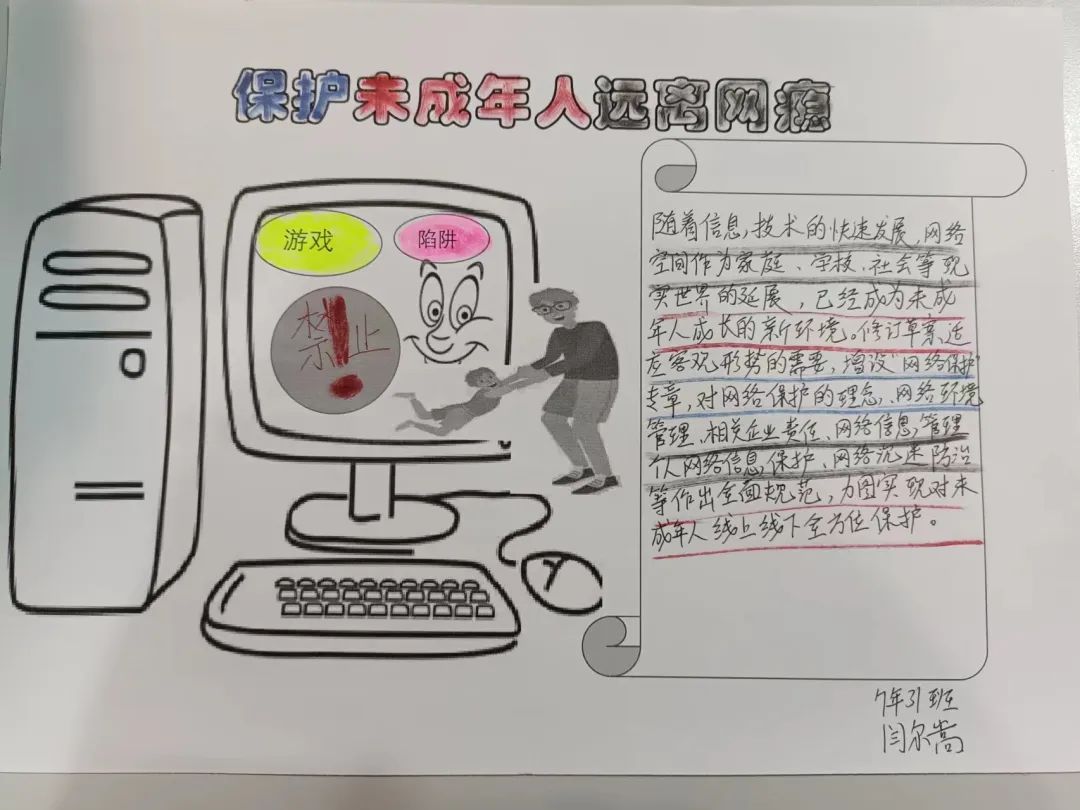 保护未成年人远离网瘾
游戏
陷阱
禁!止
随着信息技术的快速发展,网络
空间作为家庭、学校、社会等现
实世界的延展,已经成为未成
年人成长的新环境。修订草案适
应客观形势的需要,增设“网络保护”
专章,对网络保护的理念、网络环境
管理、相关企业责任、网络信息管理
个人网络信息保护、网络沉迷防治
等作出全面规范,力图实现对未
成年人线上线下全方位保护。
7年31班
闫尔嵩